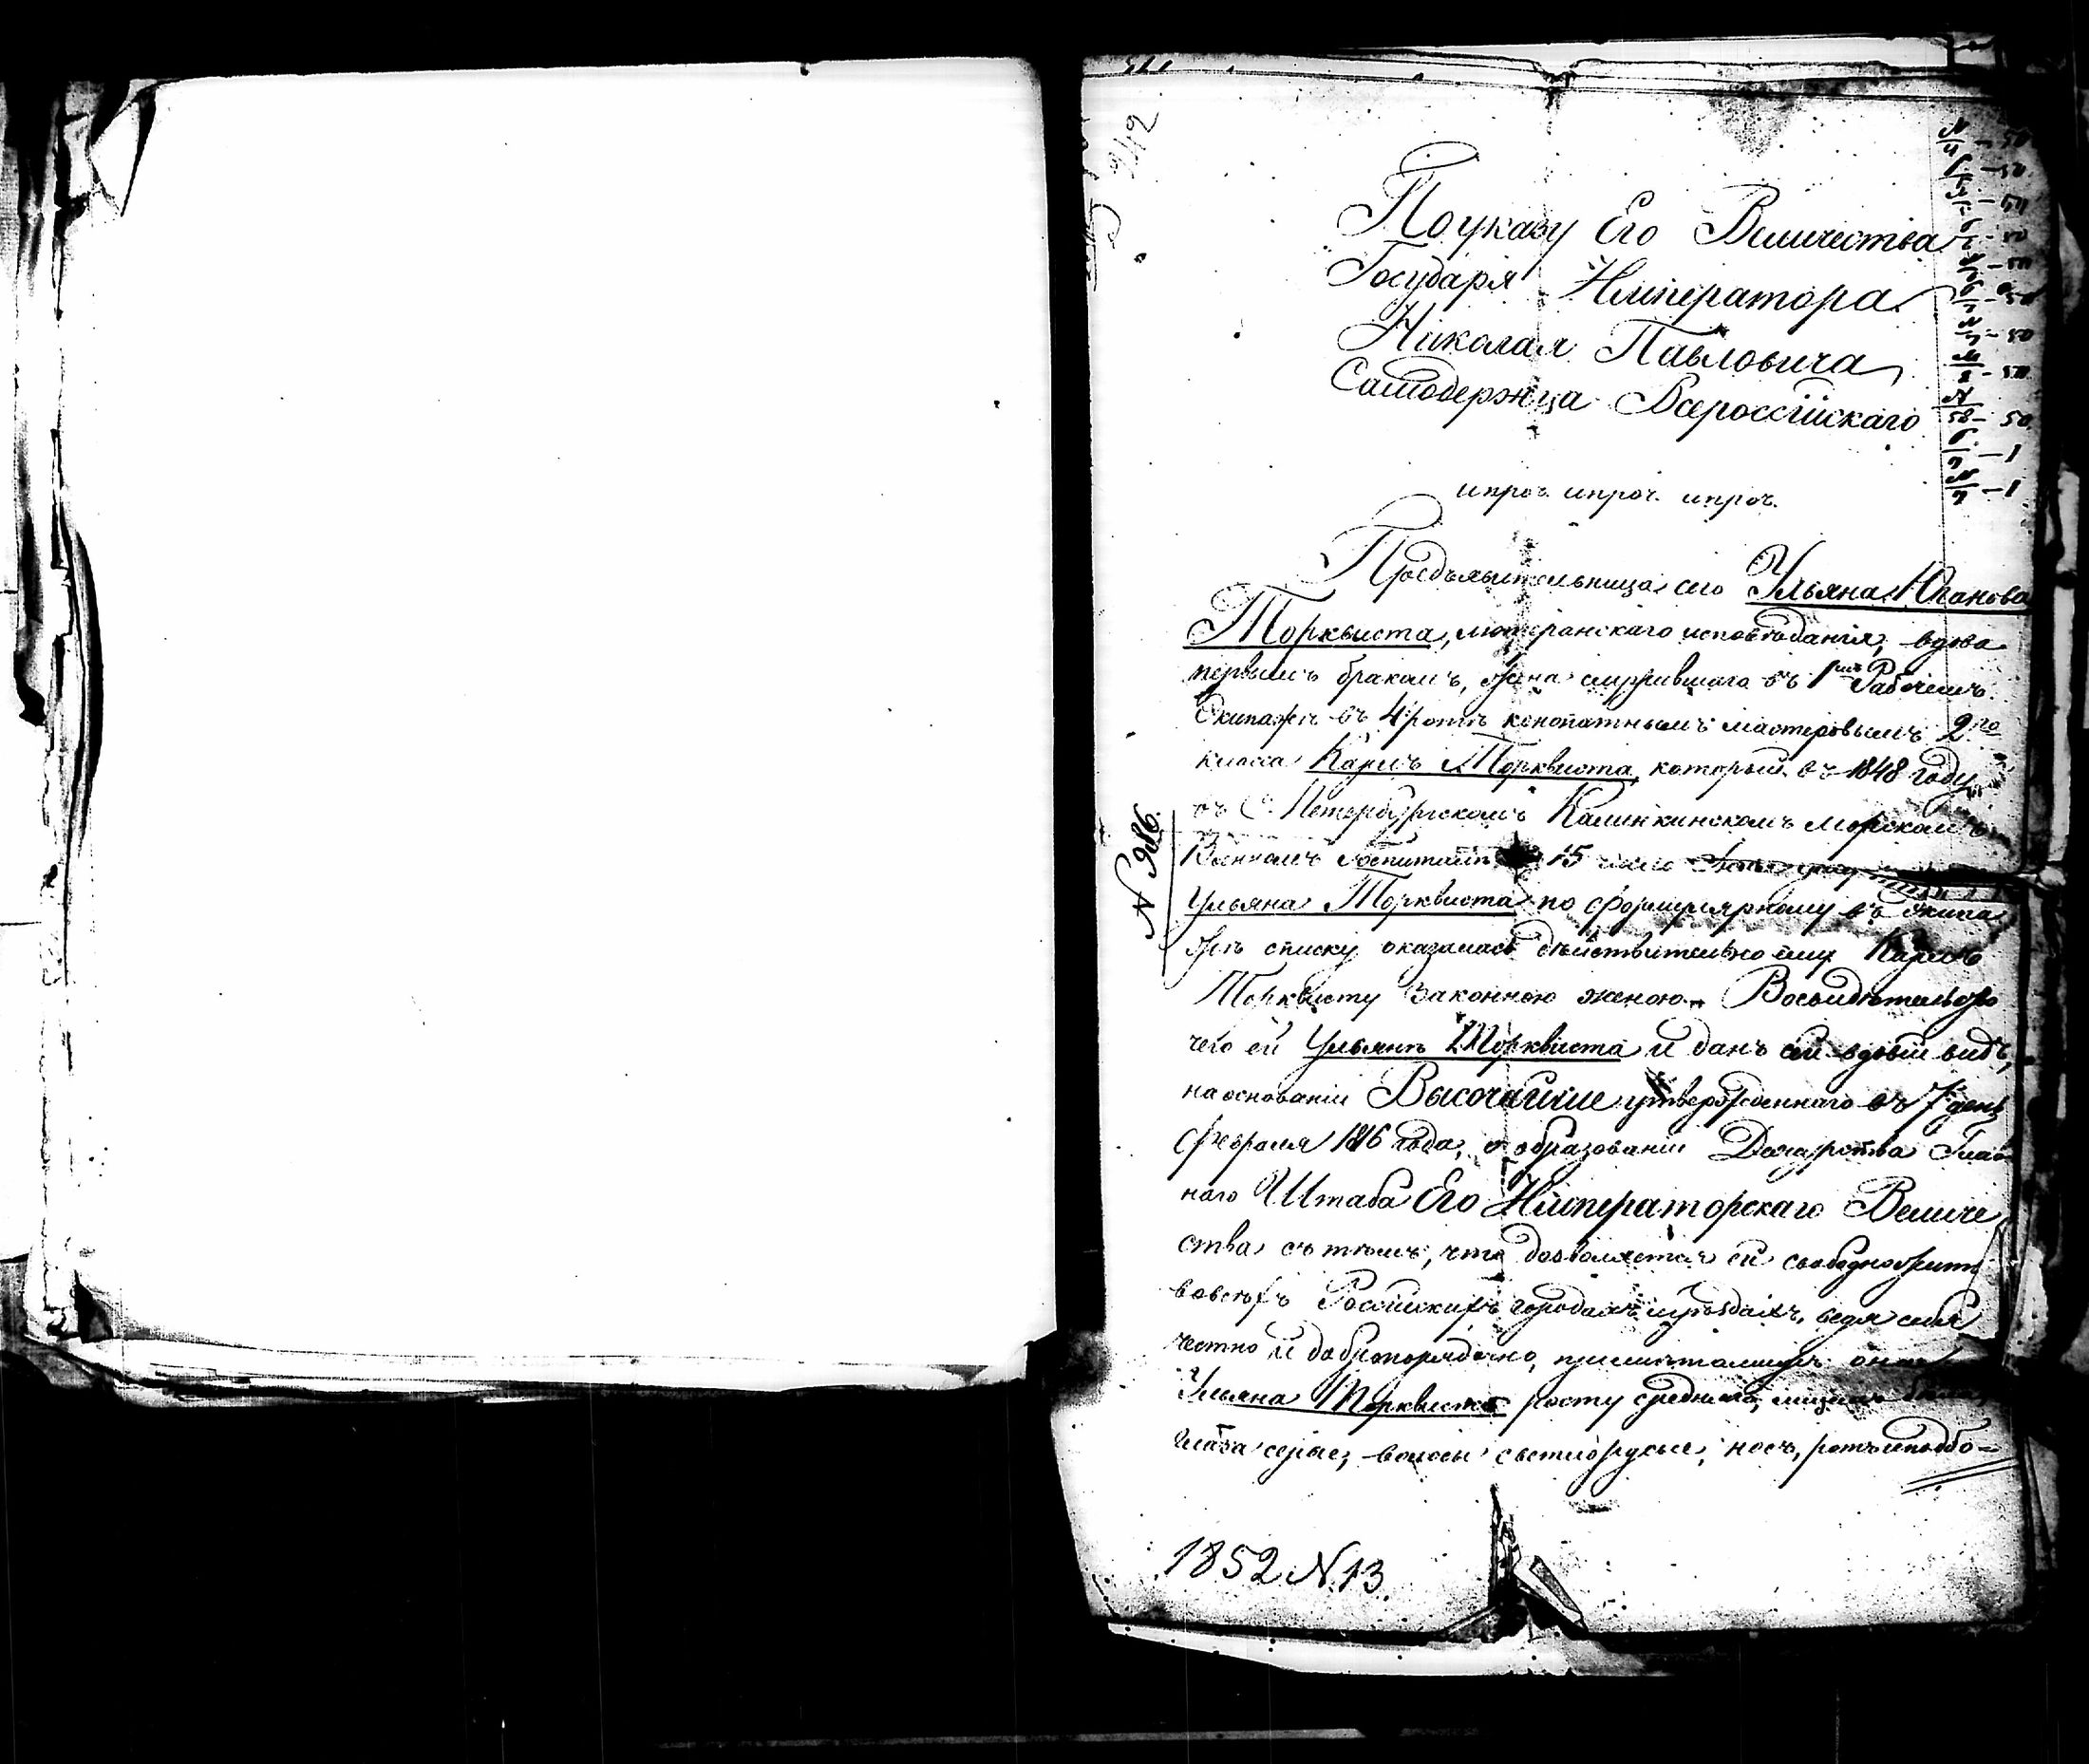 По указу Его Величества
Государя Императора
Николая Павловича
Самодержца Всероссійскаго
и проч. и проч. и проч.
Предъявительница сего Ульяна
Торквиста, лютеранскаго исповѣданія, вдова
первымъ бракомъ, жена служившаго въ 1мъ Рабочемъ
Экипажѣ въ 4 ротѣ конопатнымъ мастеровымъ 2го
класса Карлъ Торквиста, который въ 1848 году
въ С. Петербургскомъ Калинкинскомъ Морскомъ
Военномъ Госпиталѣ 15 числа
Ульяна Торквиста по формулярному въ Экипа
жѣ списку оказалась дѣйствительно ему Карлѣ
Торквисту законною женою. Во свидѣтельство
чего ей Ульянѣ Торквиста и данъ сей вдовій видъ,
на основаніи Высочайше утвержденнаго въ 7 день
февраля 1816 года, о образованіи Дежурства Глав
наго Штаба Его Императорскаго Величе
ства съ тѣмъ, что дозволяется ей свободно жить
во всѣхъ Россійскихъ городахъ и уѣздахъ, ведя себя
честно и добропорядочно, примѣтами
Ульяна Торквиста росту средняго, лицемъ
глаза серые, волосы светлорусые, носъ, ротъ и подбо=
N 986.
242
50
1852 N. 13